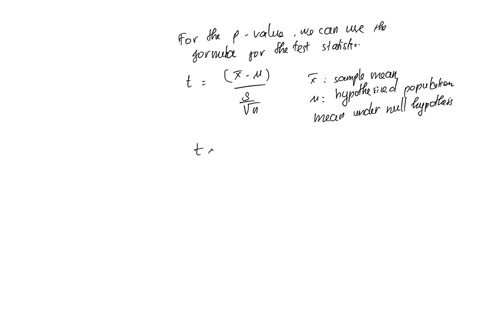 For the p-value, we can use the
formula for the test statistic.
t = (x̄ - μ) / (s/√n)
x̄ : sample mean
μ : hypothesized population
mean under null hypothesis
t =